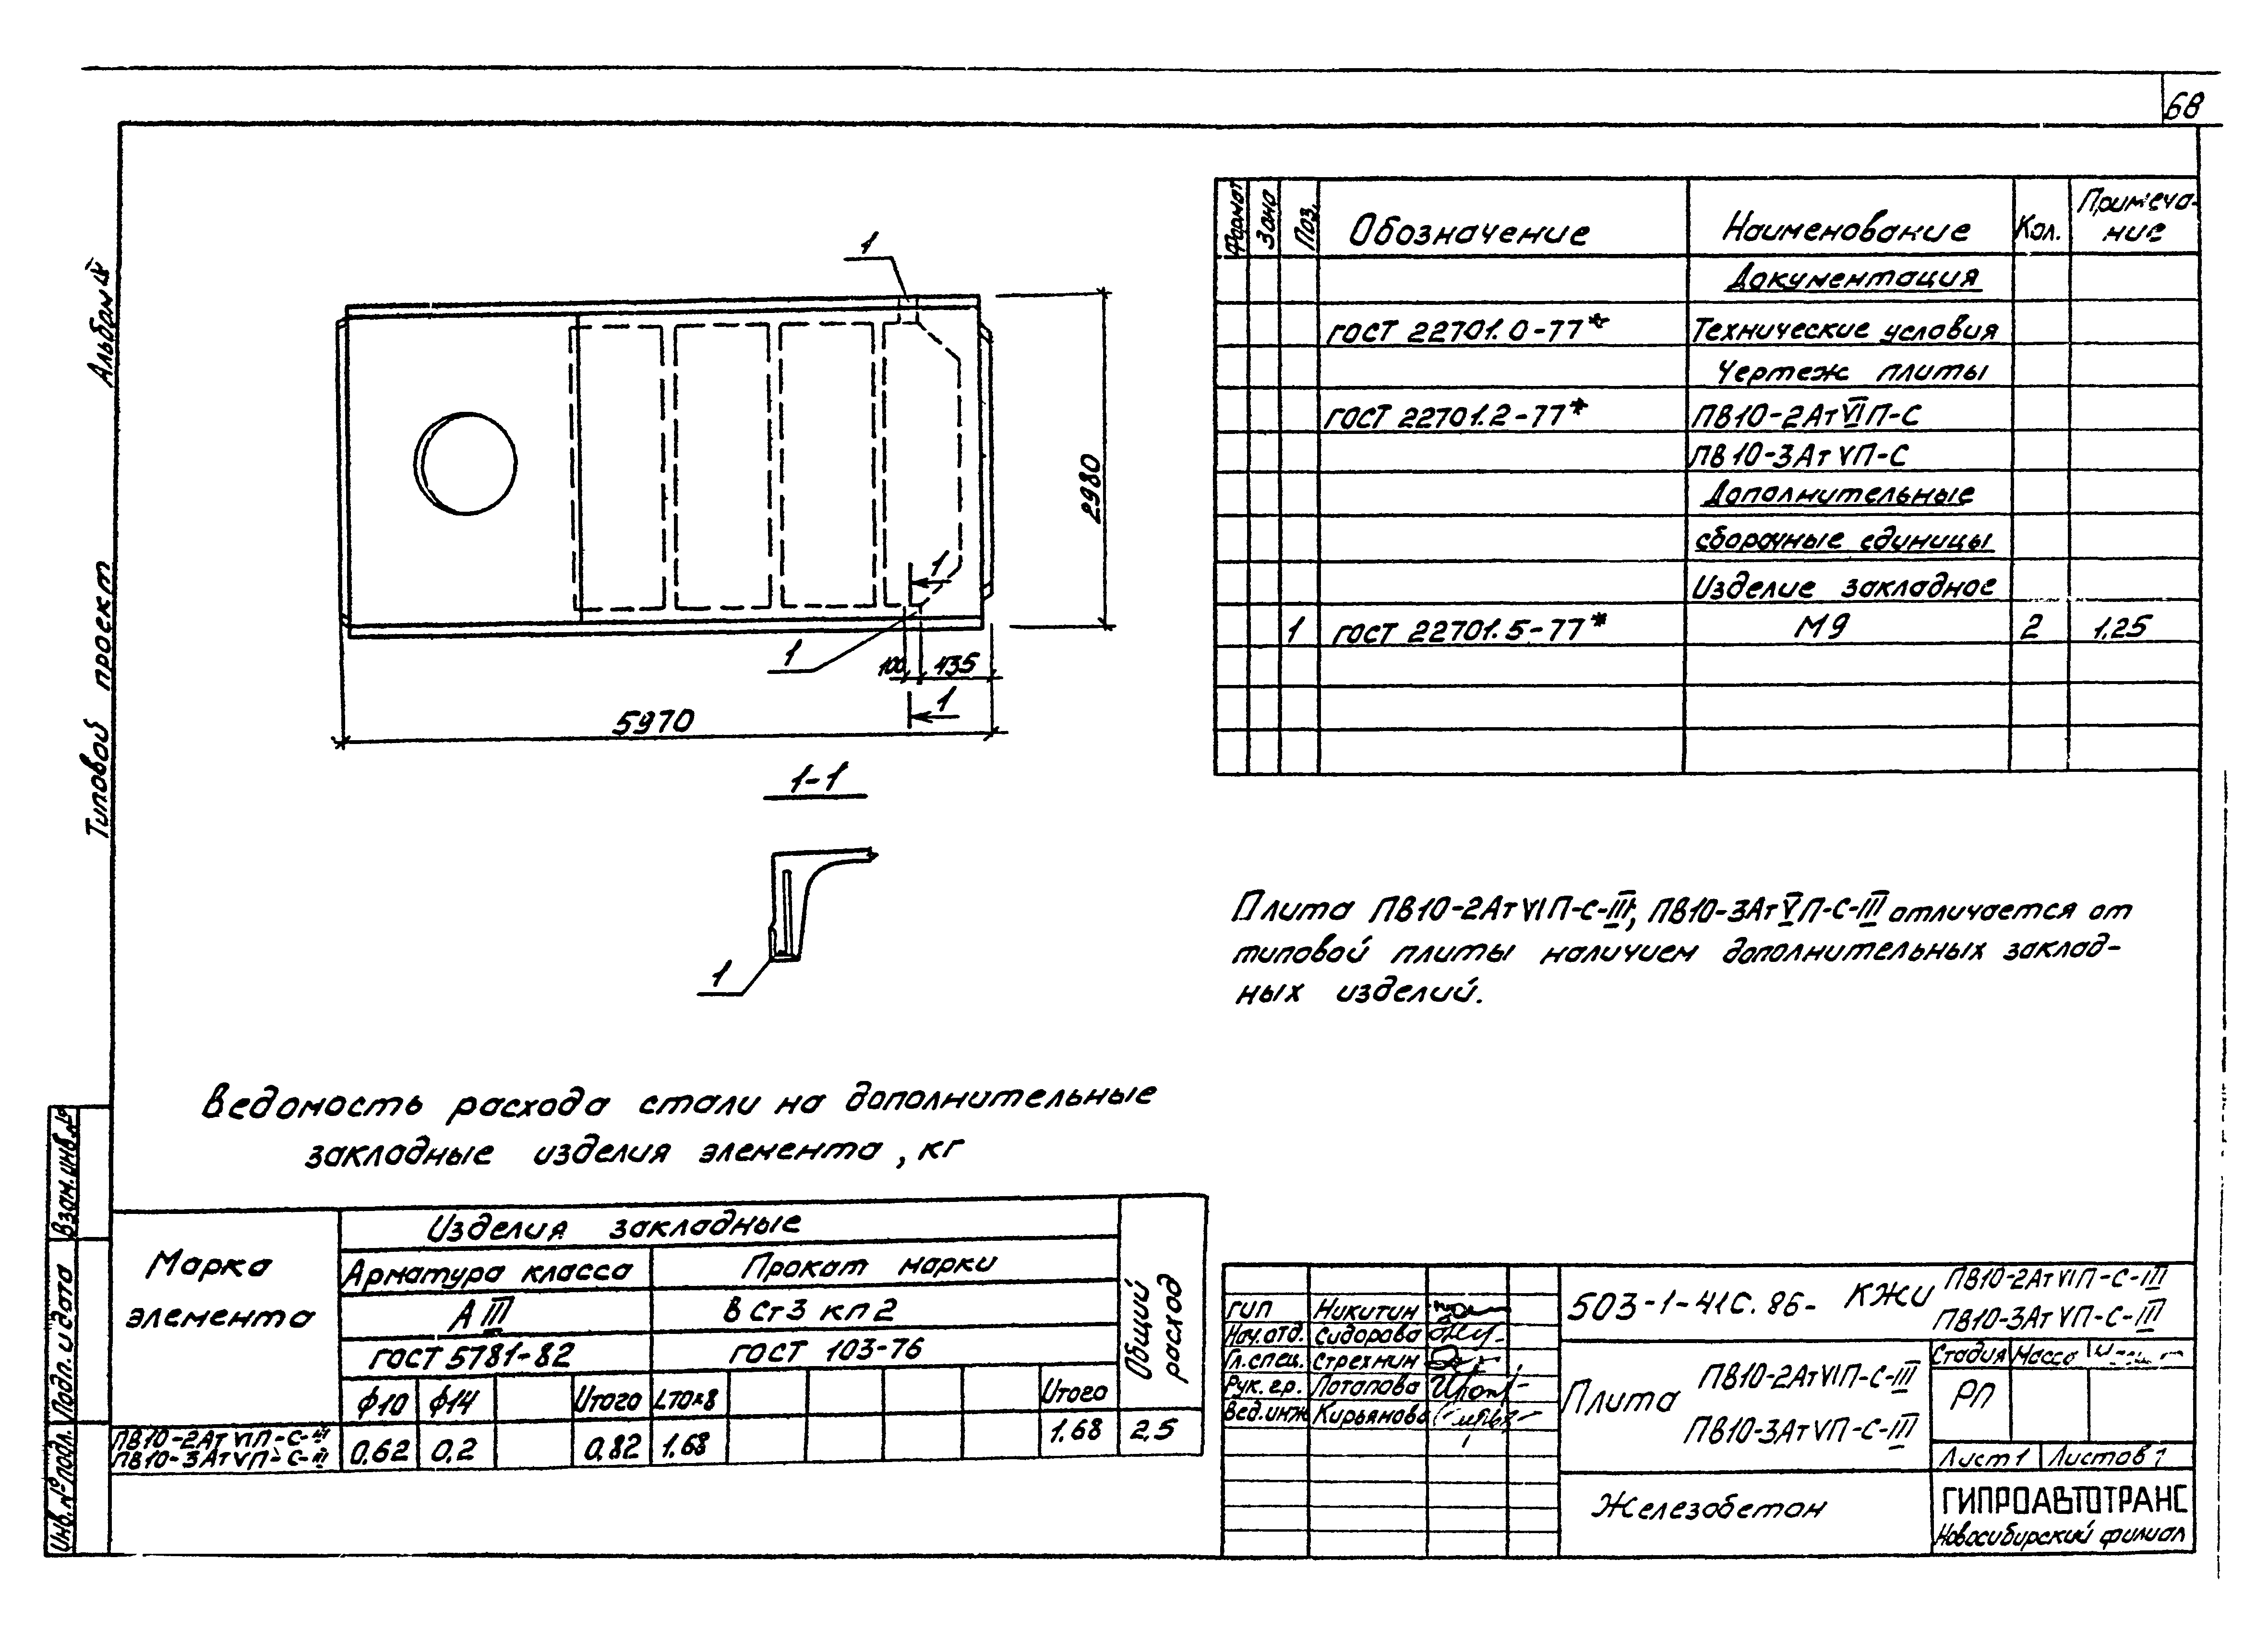 68
Альбом IV
Типовой проект
1
1
1
1
2980
100
435
5970
1-1
1
Формат Зона Поз. Обозначение Наименование Кол. Примеча-
ние
Документация
ГОСТ 22701.0-77* Технические условия
Чертеж плиты
ГОСТ 22701.2-77* ПВ10-2АтVIП-С
ПВ10-3АтVП-С
Дополнительные
сборочные единицы
Изделие закладное
1 ГОСТ 22701.5-77* М9 2 1,25
Плита ПВ10-2АтVIП-С-III, ПВ10-3АтVП-С-III отличается от
типовой плиты наличием дополнительных заклад-
ных изделий.
Ведомость расхода стали на дополнительные
закладные изделия элемента, кг
Марка
элемента
Изделия закладные
Общий
расход
Арматура класса Прокат марки
А III ВСт3 кп2
ГОСТ 5781-82 ГОСТ 103-76
Ф10 Ф14 Итого L70×8 Итого
ПВ10-2АтVIП-С-III
ПВ10-3АтVП-С-III
0,62 0,2 0,82 1.68 1.68 2,5
Взам. инв. №
Подп. и дата
Инв. № подл.
ГИП Никитин
Нач. отд. Сидорова
Гл. спец. Стрехнин
Рук. гр. Потапова
Вед. инж. Кирьянова
503-1-41с.86- КЖИ ПВ10-2АтVIП-С-III
ПВ10-3АтVП-С-III
Плита ПВ10-2АтVIП-С-III
ПВ10-3АтVП-С-III
Стадия Масса
РП
Лист 1 Листов 1
Железобетон
ГИПРОАВТОТРАНС
Новосибирский филиал